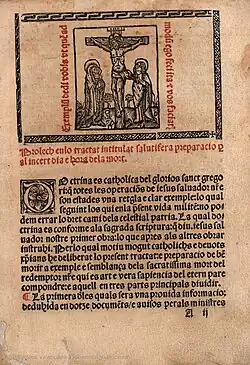 Exempl͂u dedi vobis vt quẽad
modũ ego feci ita ⁊ vos faciat
Prolech en lo tractat intitulat salutifera preparacio ꝑ
al incert dia e hora dela mort.
Octrina es catholica del glorios sanct grego
ri q̃ totes les operaciõs de Jesus saluador nr̃e
son estades vna regla e clar exemple lo qual
seguint los qui en la p̃sent vida militẽ no po
dem errar lo dret cami dela celestial patria. La qual do
ctrina es conforme ala sagrada scriptura: q̃ diu. Jesus sal
uador nostre primer obra: lo que apres als altres obrar
instruhi. Per lo qual moiu mogut catholichs e deuots
xp̃ians he deliberat lo present tractat: e preparacio de be
morir a exemple e semblança dela sacratissima mort del
redemptor nr̃e qui es art e vera sapiencia del etern pare
compondre: e aquell en tres parts principals diuidir.
¶ La primera d̃les quals sera vna prouida informacio:
deduhida en dotze documẽts: e auisos perals ministres
A ij